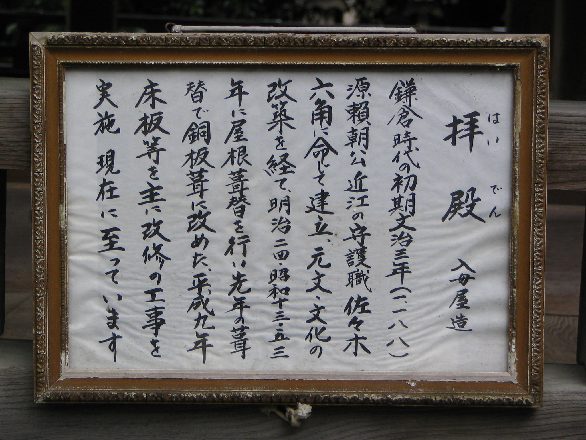 拝殿 入母屋造
はいでん
鎌倉時代の初期文治三年(一一八八)
源頼朝公近江の守護職佐々木
六角に命じて建立、元文・文化の
改築を経て、明治二四・昭和十三・五三
年に屋根葺替を行い、先年葺
替で銅板葺に改めた、平成九年
床板等を主に改修の工事を
実施 現在に至っています